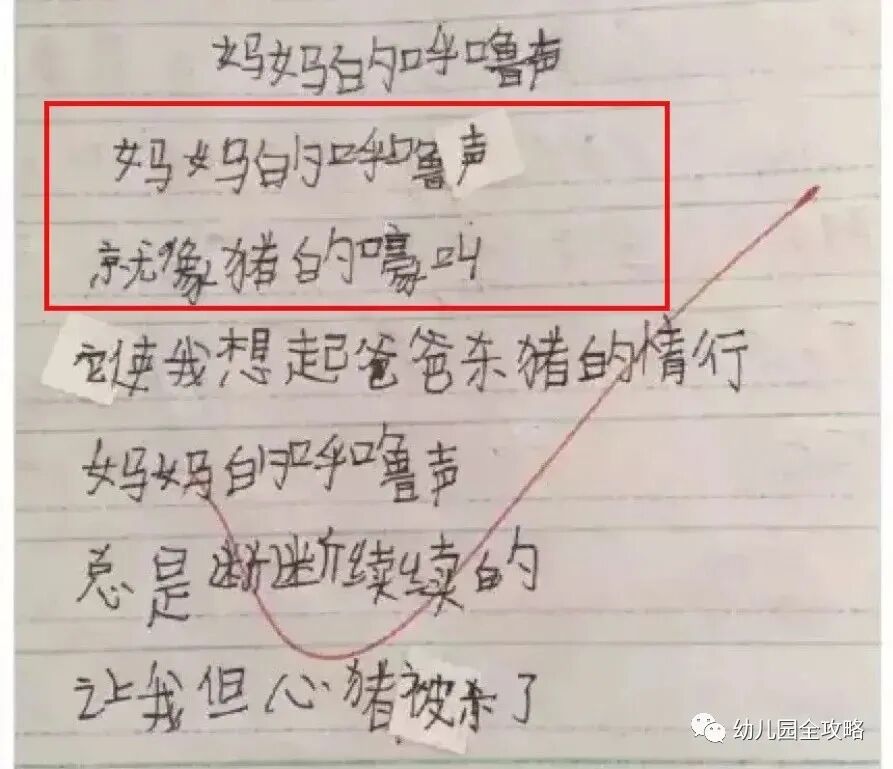 妈妈的呼噜声
妈妈的呼噜声
就像猪的嚎叫
它使我想起爸爸杀猪的情行
妈妈的呼噜声
总是断断续续的
让我但心猪被杀了
幼儿园全攻略